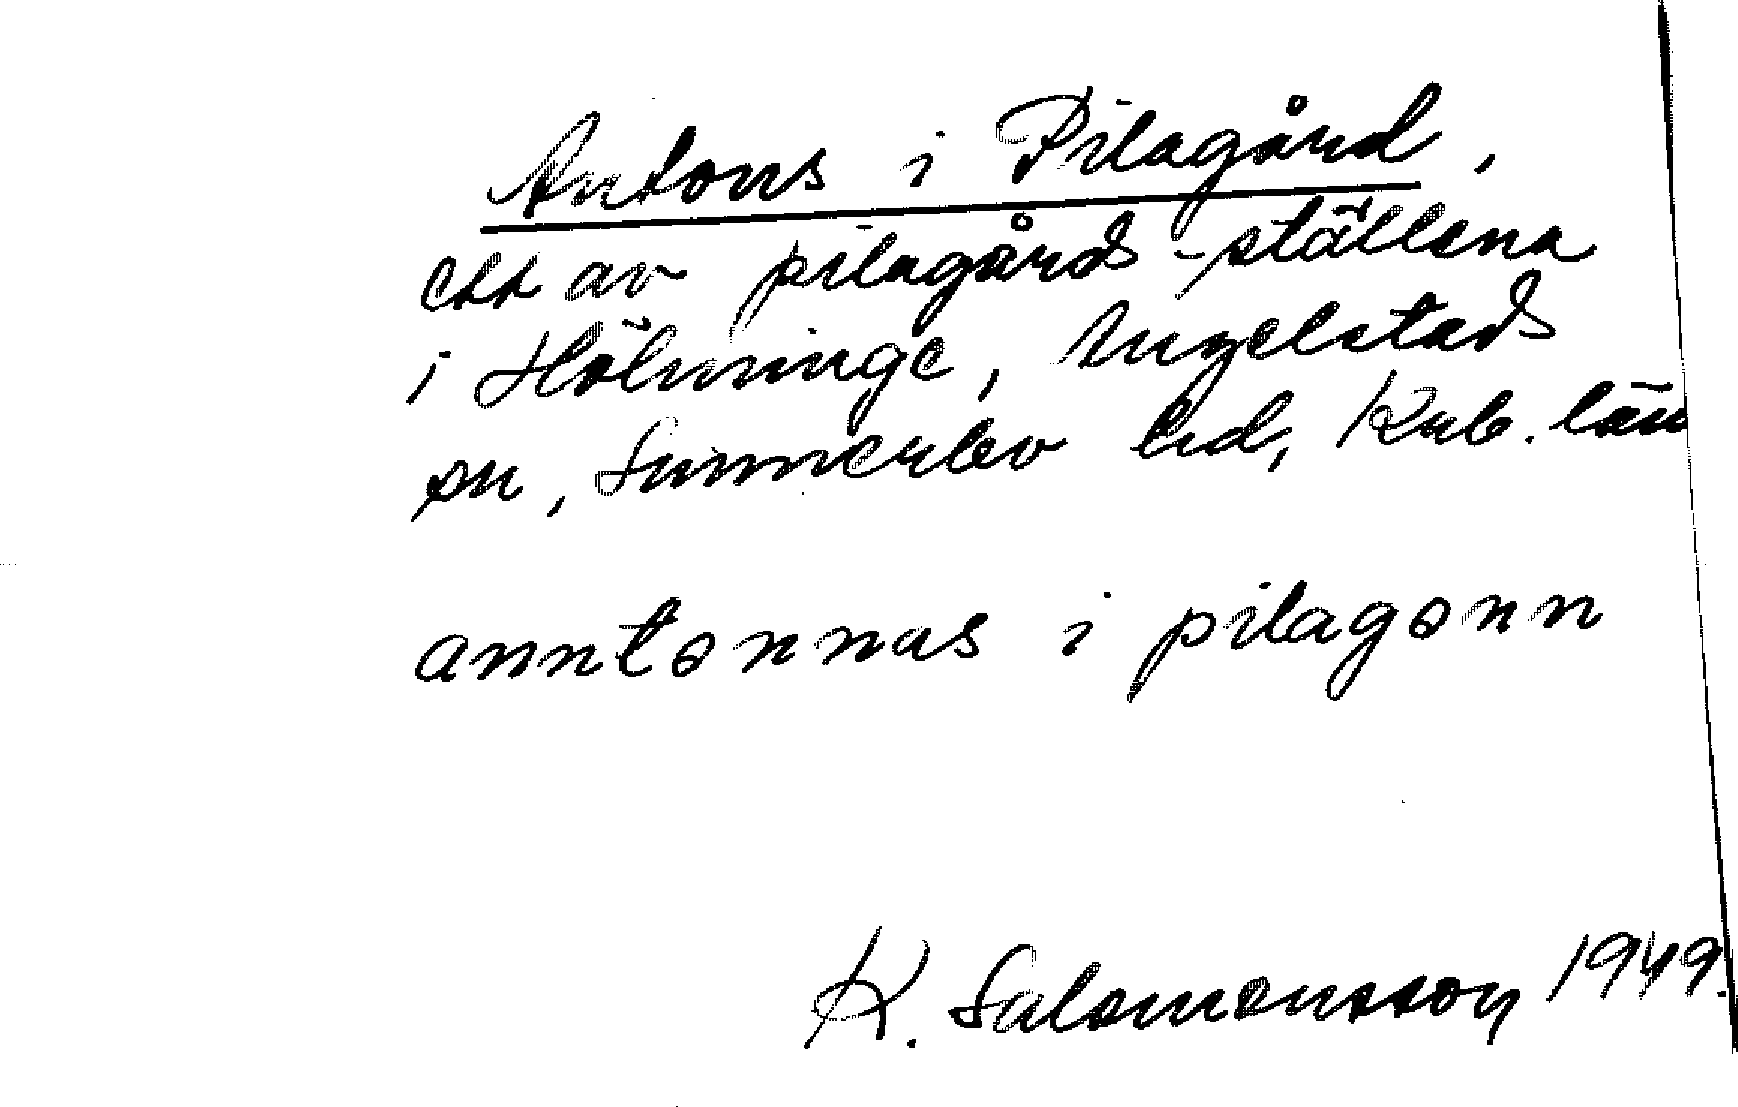 Antons i Pilagård,
ett av pilagårds-ställena
i Hölminge, Angelstads
sn, Sunnerbo hd, Krb. län
anntonnas i pilagonn
K. Salomonsson 1949.